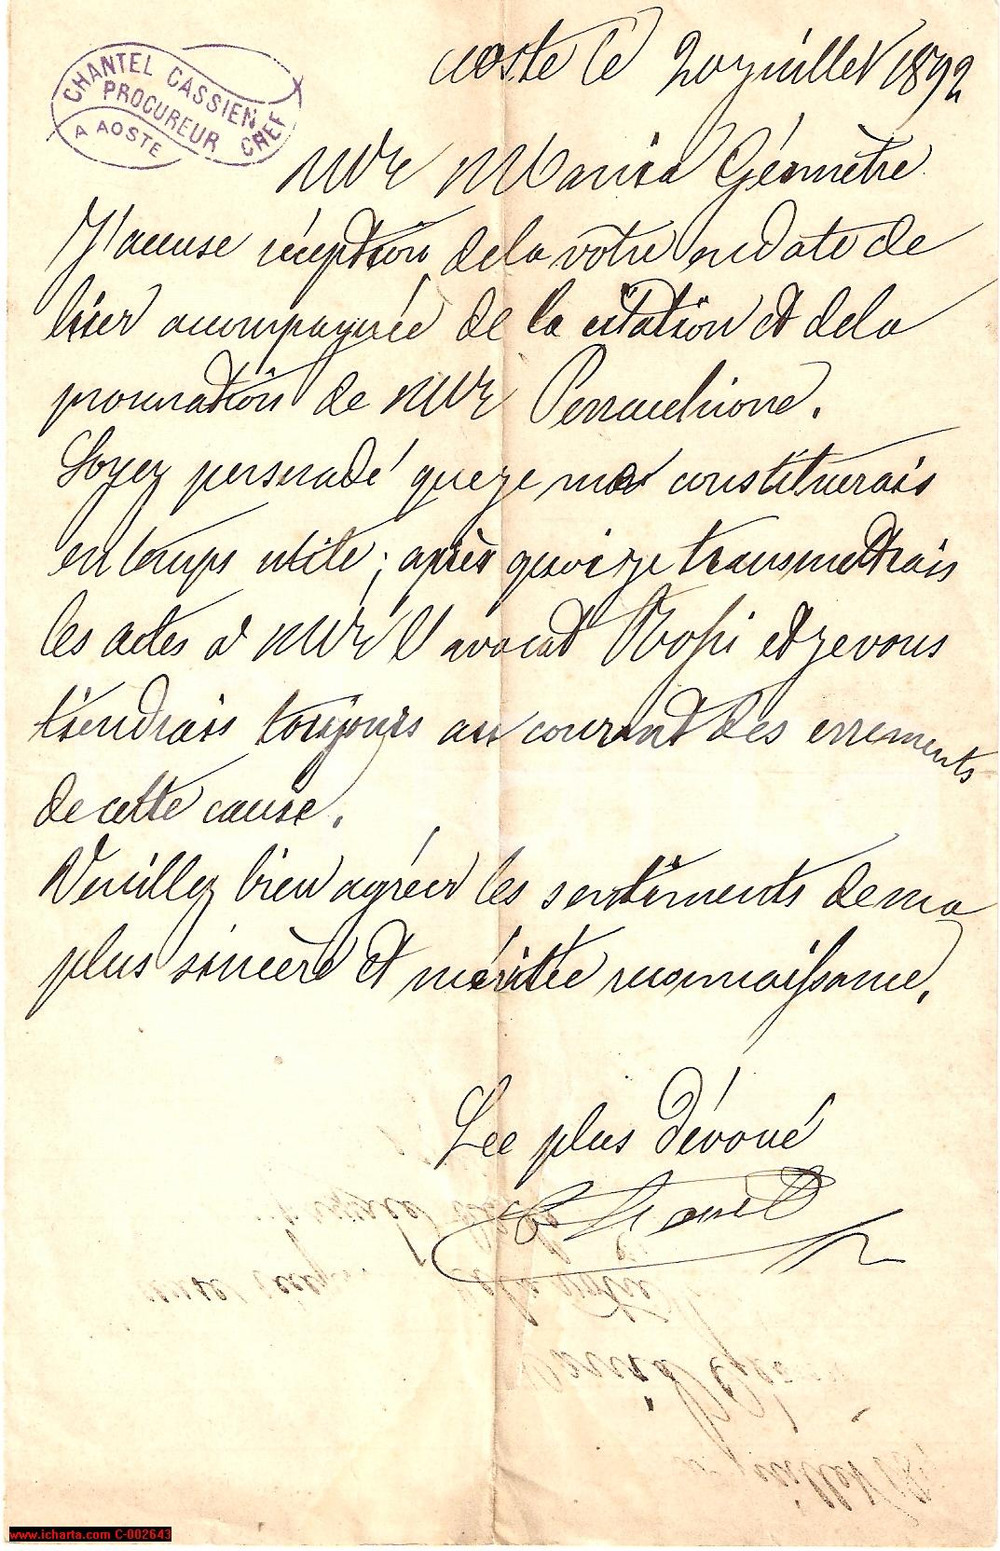 CHANTEL CASSIEN
PROCUREUR CHEF
A AOSTE
Aoste le 20 juillet 1892
Mr Géomètre
J'accuse réception de la votre en date de
hier accompagnée de la citation et de la
procuration de Mr Perruchione.
Soyez persuadé que je me constituerais
en temps utile ; après quoi je transmettrais
les actes à Mr l'avocat et je vous
tiendrais toujours au courant des errements
de cette cause.
Veuillez bien agréer les sentiments de ma
plus sincère et méritée reconnaissance.
Lee plus dévoué
Chantel
www.icharta.com C-002643